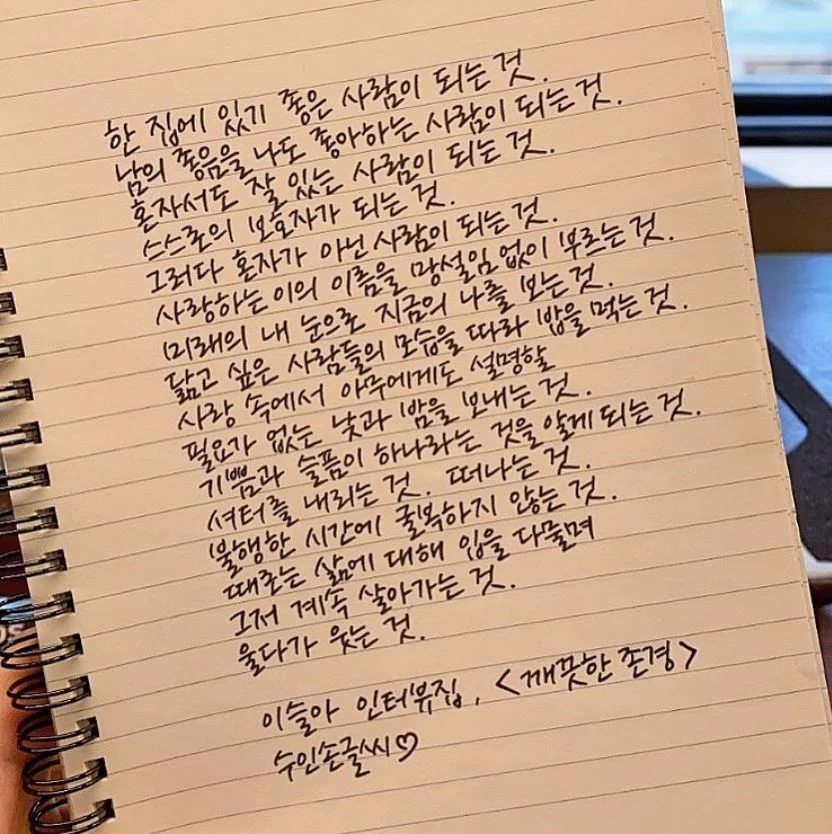 한 집에 있기 좋은 사람이 되는 것.
남의 좋음을 나도 좋아하는 사람이 되는 것.
혼자서도 잘 있는 사람이 되는 것.
스스로의 보호자가 되는 것.
그러다 혼자가 아닌 사람이 되는 것.
사랑하는 이의 이름을 망설임 없이 부르는 것.
미래의 내 눈으로 지금의 나를 보는 것.
닮고 싶은 사람들의 모습을 따라 밥을 먹는 것.
사랑 속에서 아무에게도 설명할
필요가 없는 낮과 밤을 보내는 것.
기쁨과 슬픔이 하나라는 것을 알게 되는 것.
셔터를 내리는 것. 떠나는 것.
불행한 시간에 굴복하지 않는 것.
때로는 삶에 대해 입을 다물며
그저 계속 살아가는 것.
울다가 웃는 것.
이슬아 인터뷰집, <깨끗한 존경>
수인손글씨♡